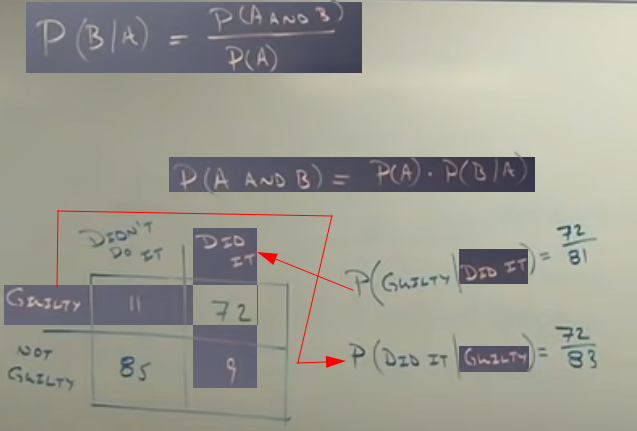 P(B|A) = P(A AND B) / P(A)
P(A AND B) = P(A) · P(B|A)
DIDN'T DO IT
DID IT
GUILTY 11 72
NOT GUILTY 85 9
P(GUILTY|DID IT) = 72/81
P(DID IT|GUILTY) = 72/83